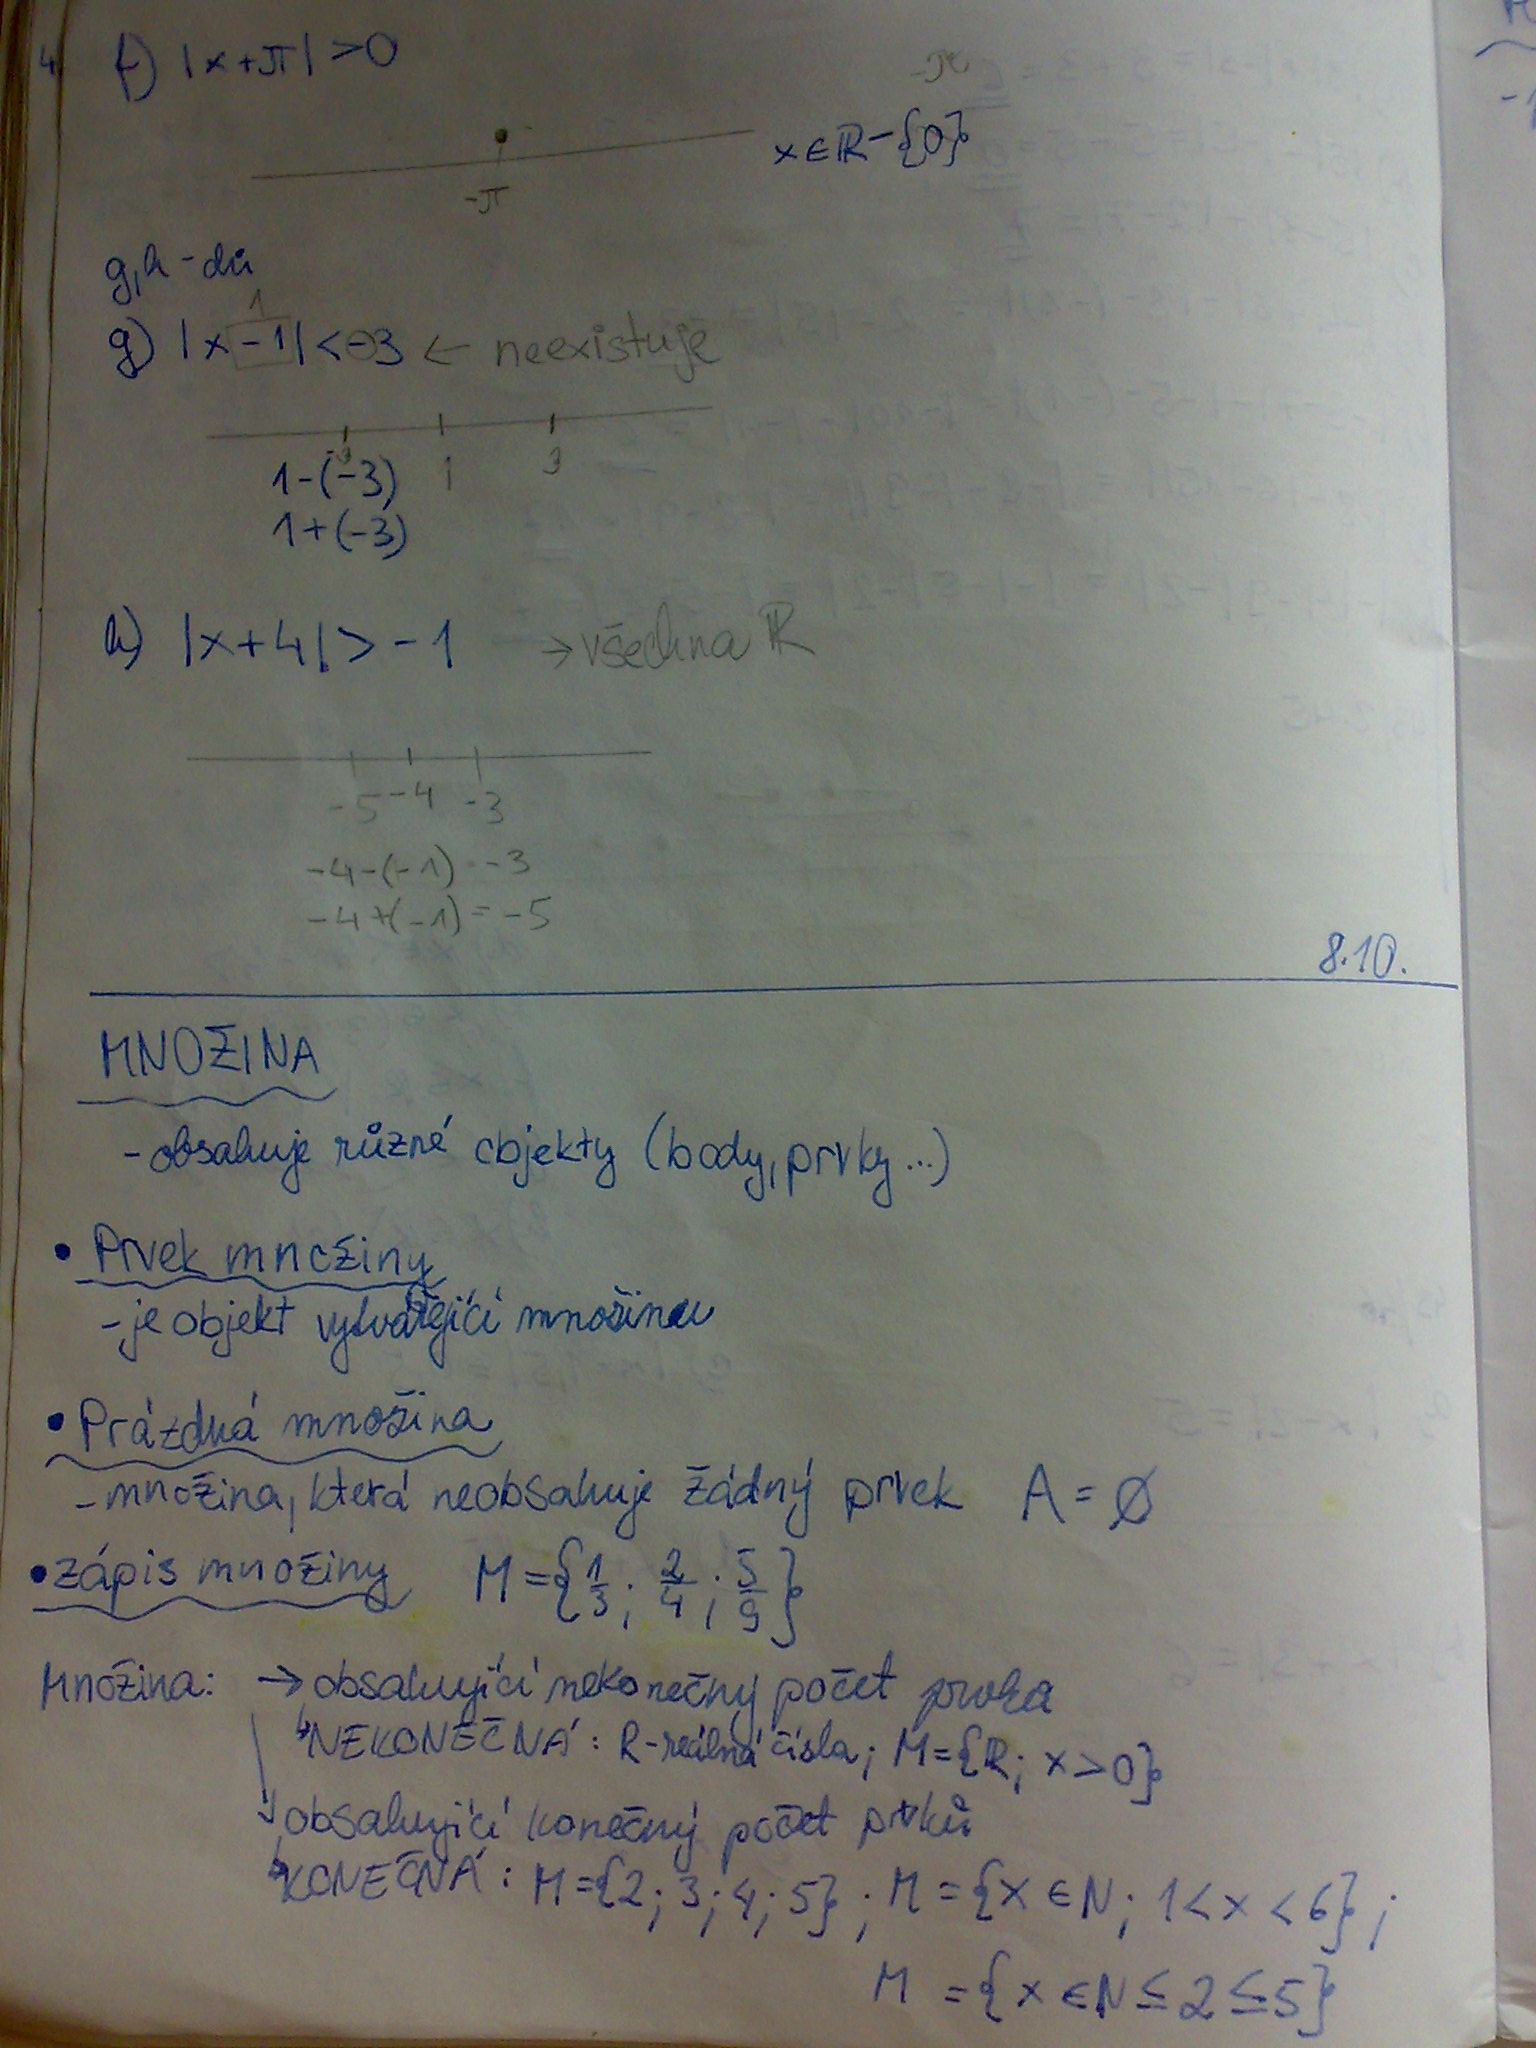 4 f) |x+π| >0
-π
x∈R-{0}
-π
g,h - dú
1
g) |x-1| <-3 ← neexistuje
-3 1 3
1-(-3)
1+(-3)
h) |x+4| > -1 → všechna R
-5 -4 -3
-4-(-1) = -3
-4+(-1) = -5
8.10.
MNOŽINA
- obsahuje různé objekty (body, prvky ...)
• Prvek množiny
- je objekt vytvářející množinu
• Prázdná množina
- množina, která neobsahuje žádný prvek A = ∅
• Zápis množiny M = {1/3; 2/4; 5/9}
Množina: → obsahující nekonečný počet prvků
↳ NEKONEČNÁ: R-reálná čísla; M={R; x>0}
↓ obsahující konečný počet prvků
↳ KONEČNÁ: M={2; 3; 4; 5}; M = {x ∈ N; 1< x < 6};
M = {x ∈ N ≤ 2 ≤ 5}